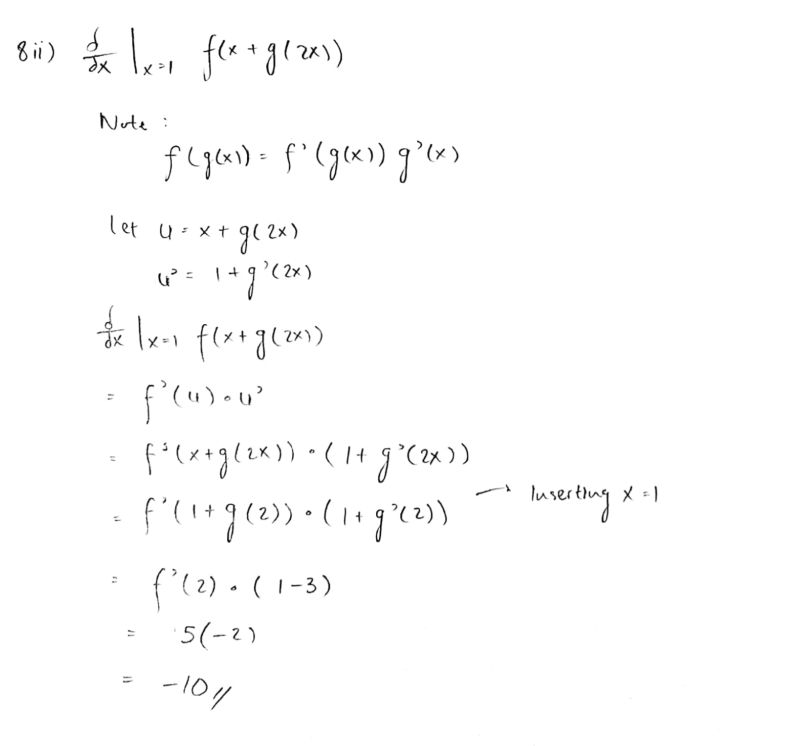 8ii) d/dx |x=1 f(x + g(2x))
Note :
f(g(x)) = f'(g(x)) g'(x)
let u = x + g(2x)
u' = 1 + g'(2x)
d/dx |x=1 f(x + g(2x))
= f'(u) • u'
= f'(x+g(2x)) • (1 + g'(2x))
= f'(1 + g(2)) • (1 + g'(2)) → Inserting x=1
= f'(2) • (1-3)
= 5(-2)
= -10//